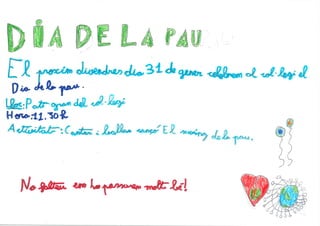 DIA DE LA PAU
El proxim divendres dia 31 de gener celebrem al col·legi el
Dia de la pau.
Lloc: Pati gran del col·legi
Hora: 11.30h
Activitat: Cantar i ballar cançó El mariny de la pau.
No falteu ens ho passarem molt bé!